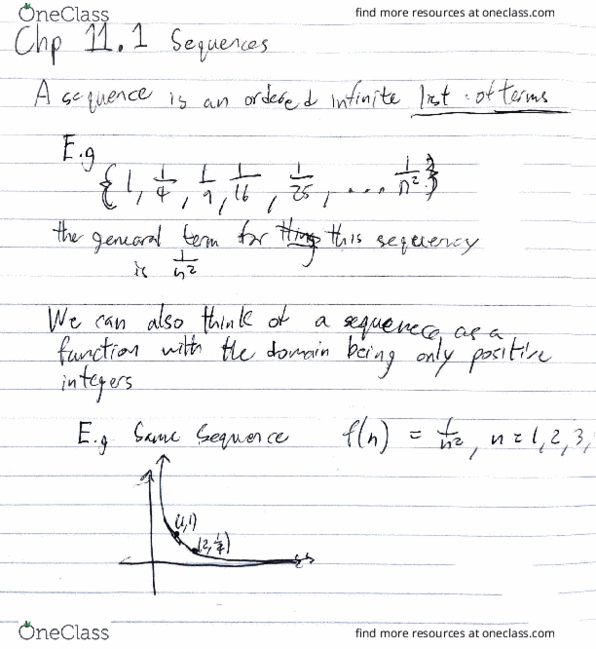 OneClass find more resources at oneclass.com
Chp 11.1 Sequences
A sequence is an ordered infinite list of terms
E.g
{1, 1/4, 1/9, 1/16, 1/25, .... 1/n²}
the general term for this sequency
is 1/n²
We can also think of a sequence as a
function with the domain being only positive
integers
E.g Same Sequence f(n) = 1/n², n = 1, 2, 3,
(1,1)
(2, 1/4)
OneClass find more resources at oneclass.com